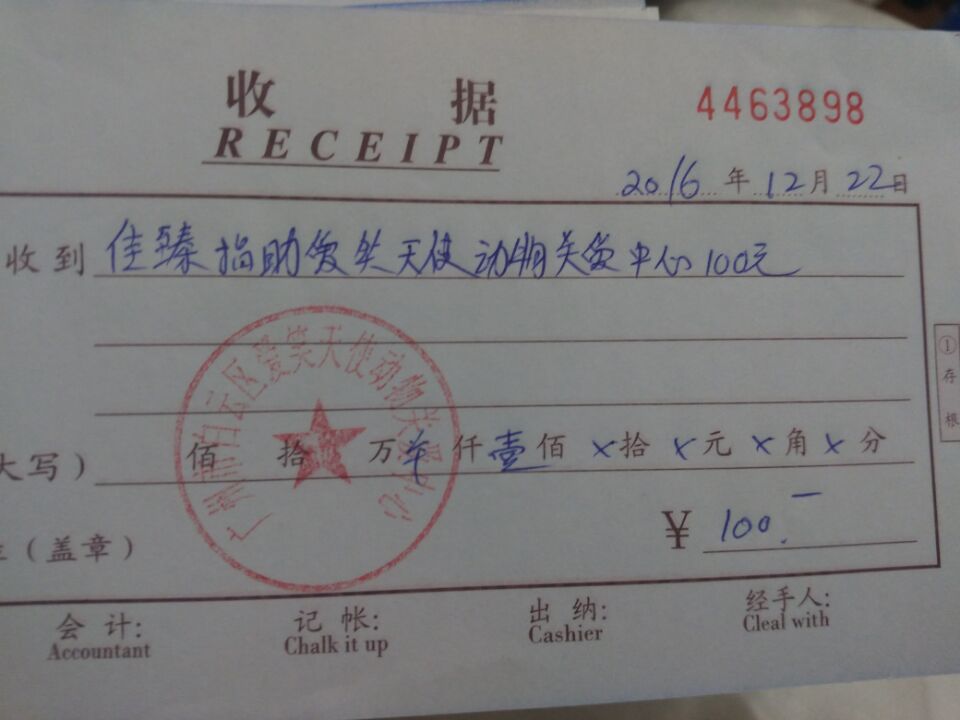 收 据
RECEIPT
4463898
2016年12月22日
收到 佳臻捐助爱笑天使动物关爱中心100元
广州市白云区爱笑天使动物关爱中心
①存根
大写） 佰 拾 万 仟壹佰×拾×元×角×分
（盖章）
¥ 100.-
会 计: 记 帐: 出 纳: 经手人:
Accountant Chalk it up Cashier Cleal with